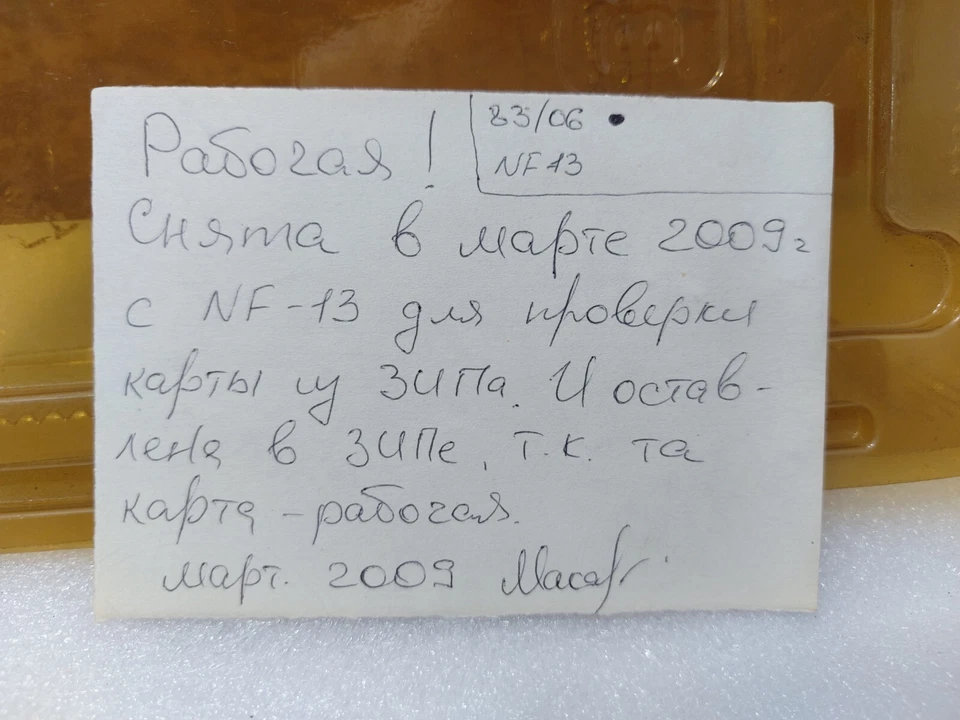 Рабочая!
83/06
NF-13
Снята в марте 2009г
с NF-13 для проверки
карты из ЗИПа. И остав-
лена в ЗИПе, т.к. та
карта - рабочая.
март. 2009